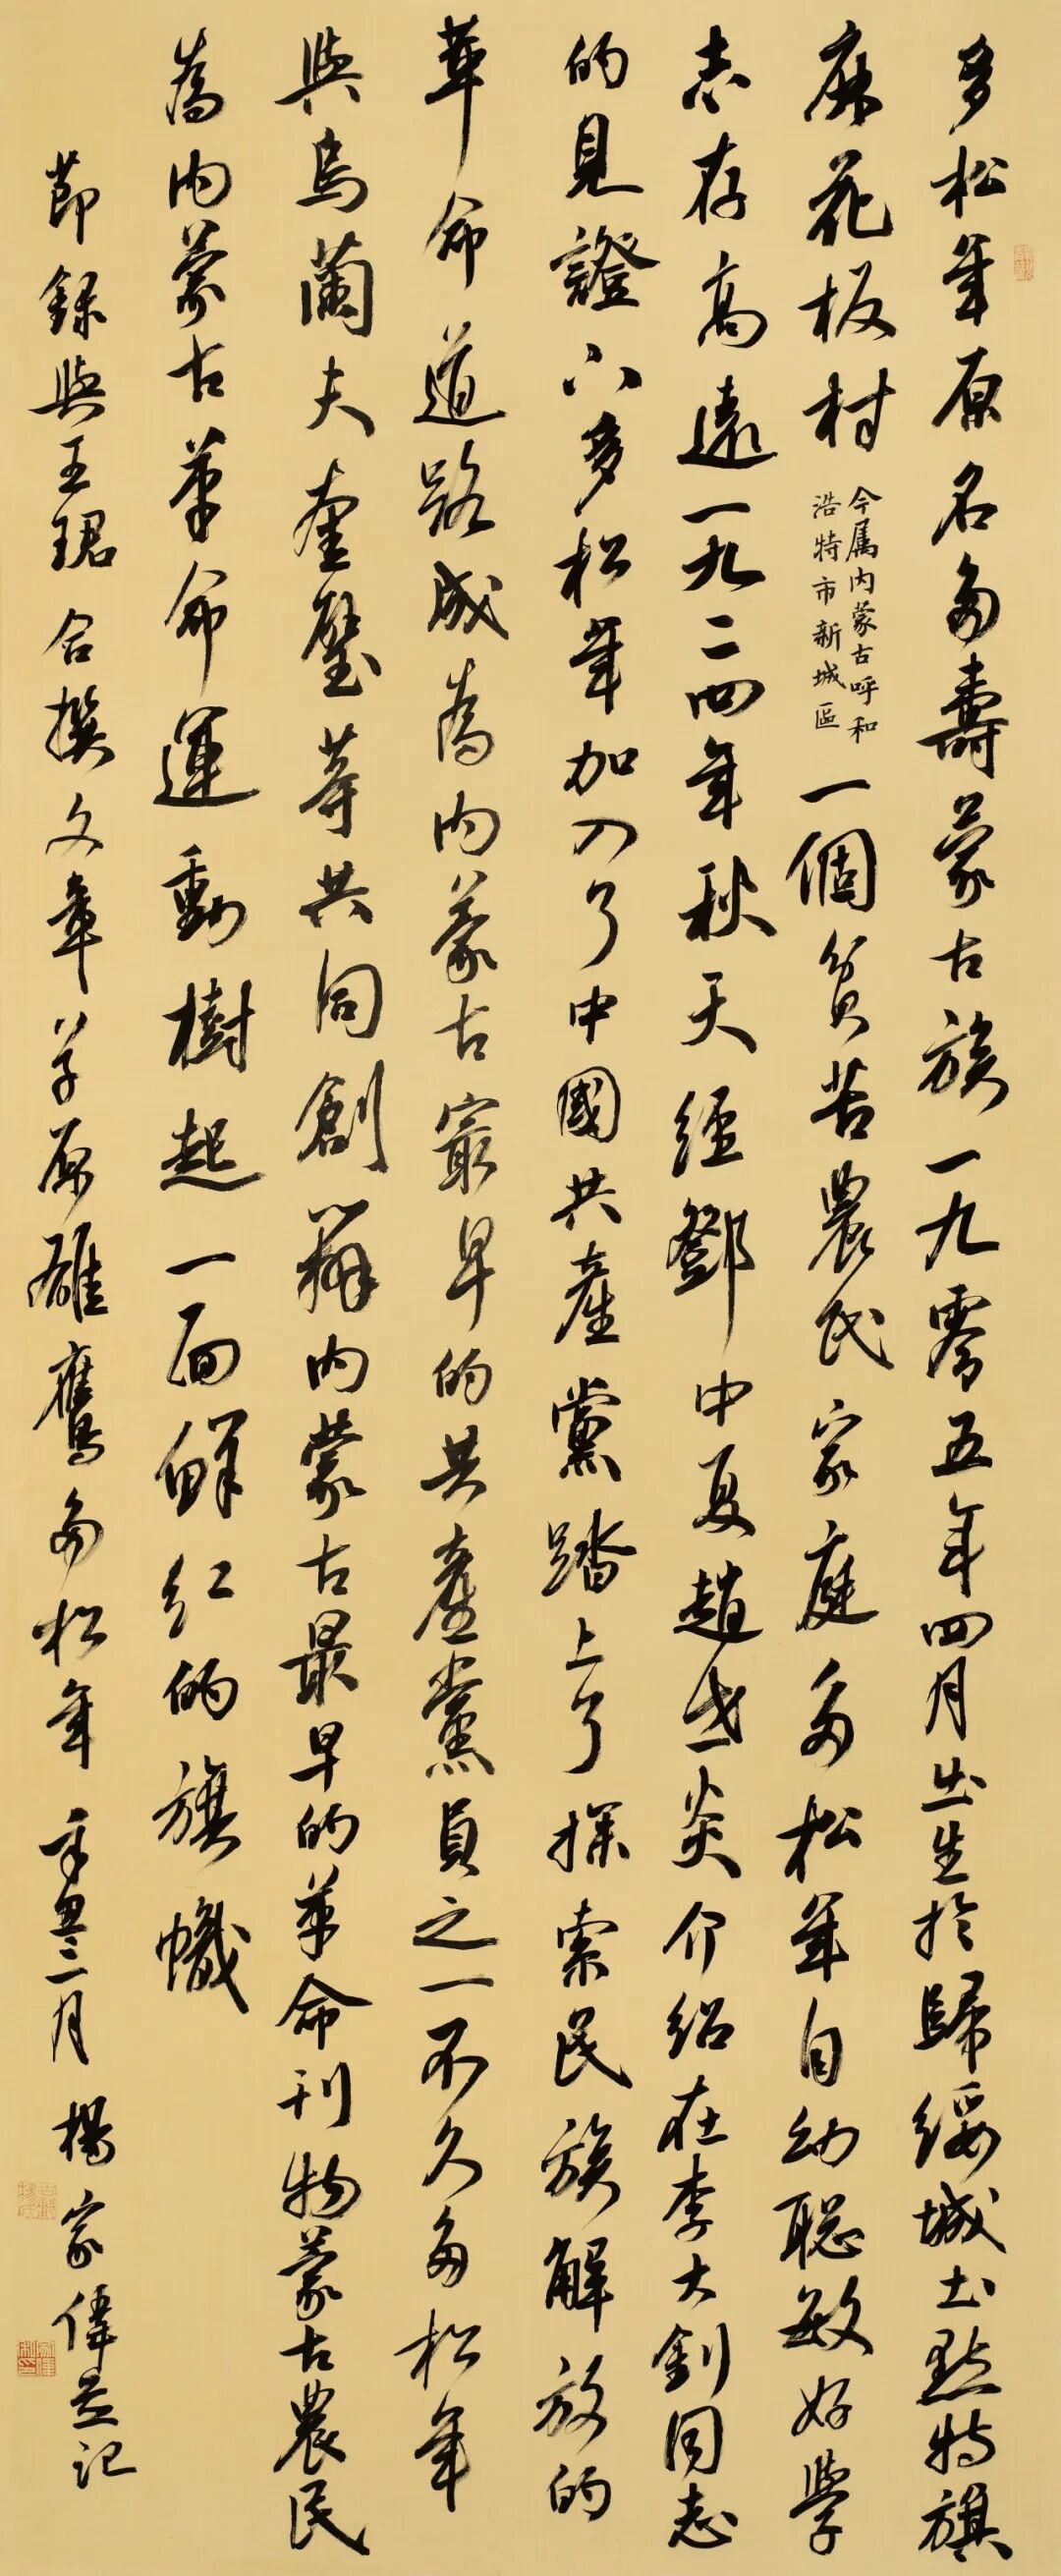 多松年原名多壽蒙古族一九零五年四月出生於歸綏城土默特旗
麻花板村
今属内蒙古呼和
浩特市新城區
一個貧苦農民家庭多松年自幼聪敏好學
志存高遠一九二四年秋天經鄧中夏趙世炎介紹在李大釗同志
的見證下多松年加入了中國共產黨踏上了探索民族解放的
革命道路成為内蒙古最早的共產黨員之一不久多松年
與烏蘭夫奎璧等共同創辦内蒙古最早的革命刊物蒙古農民
為内蒙古革命運動樹起一面鮮红的旗幟
節録與王珺合撰文章草原雄鷹多松年 辛丑二月 楊家偉並記